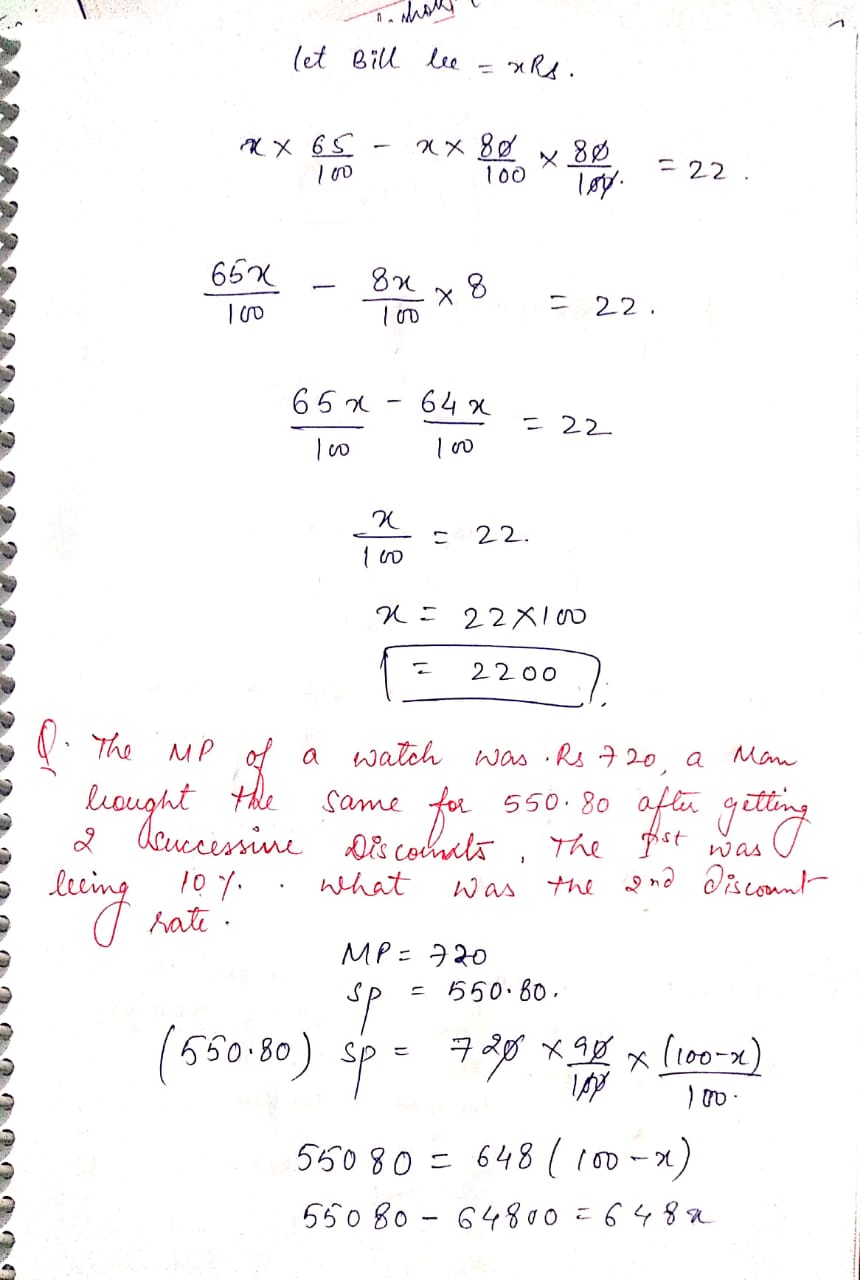 let Bill be = x Rs.
x × 65/100 - x × 80/100 × 80/100. = 22.
65x/100 - 8x/100 × 8 = 22.
65x/100 - 64x/100 = 22
x/100 = 22.
x = 22×100
= 2200
Q. The MP of a watch was . Rs 720, a Man
bought the same for 550.80 after getting
2 successive Discounts, The first was
being 10%. . what was the 2nd Discount
rate.
MP = 720
SP = 550.80.
(550.80) SP = 720 × 90/100 × (100-x)/100.
55080 = 648 (100-x)
55080 - 64800 = 648x